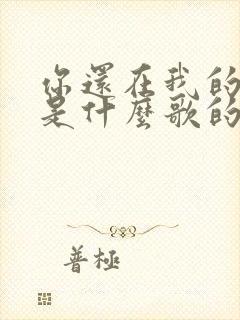 你還在我的
是什麼歌的
普極